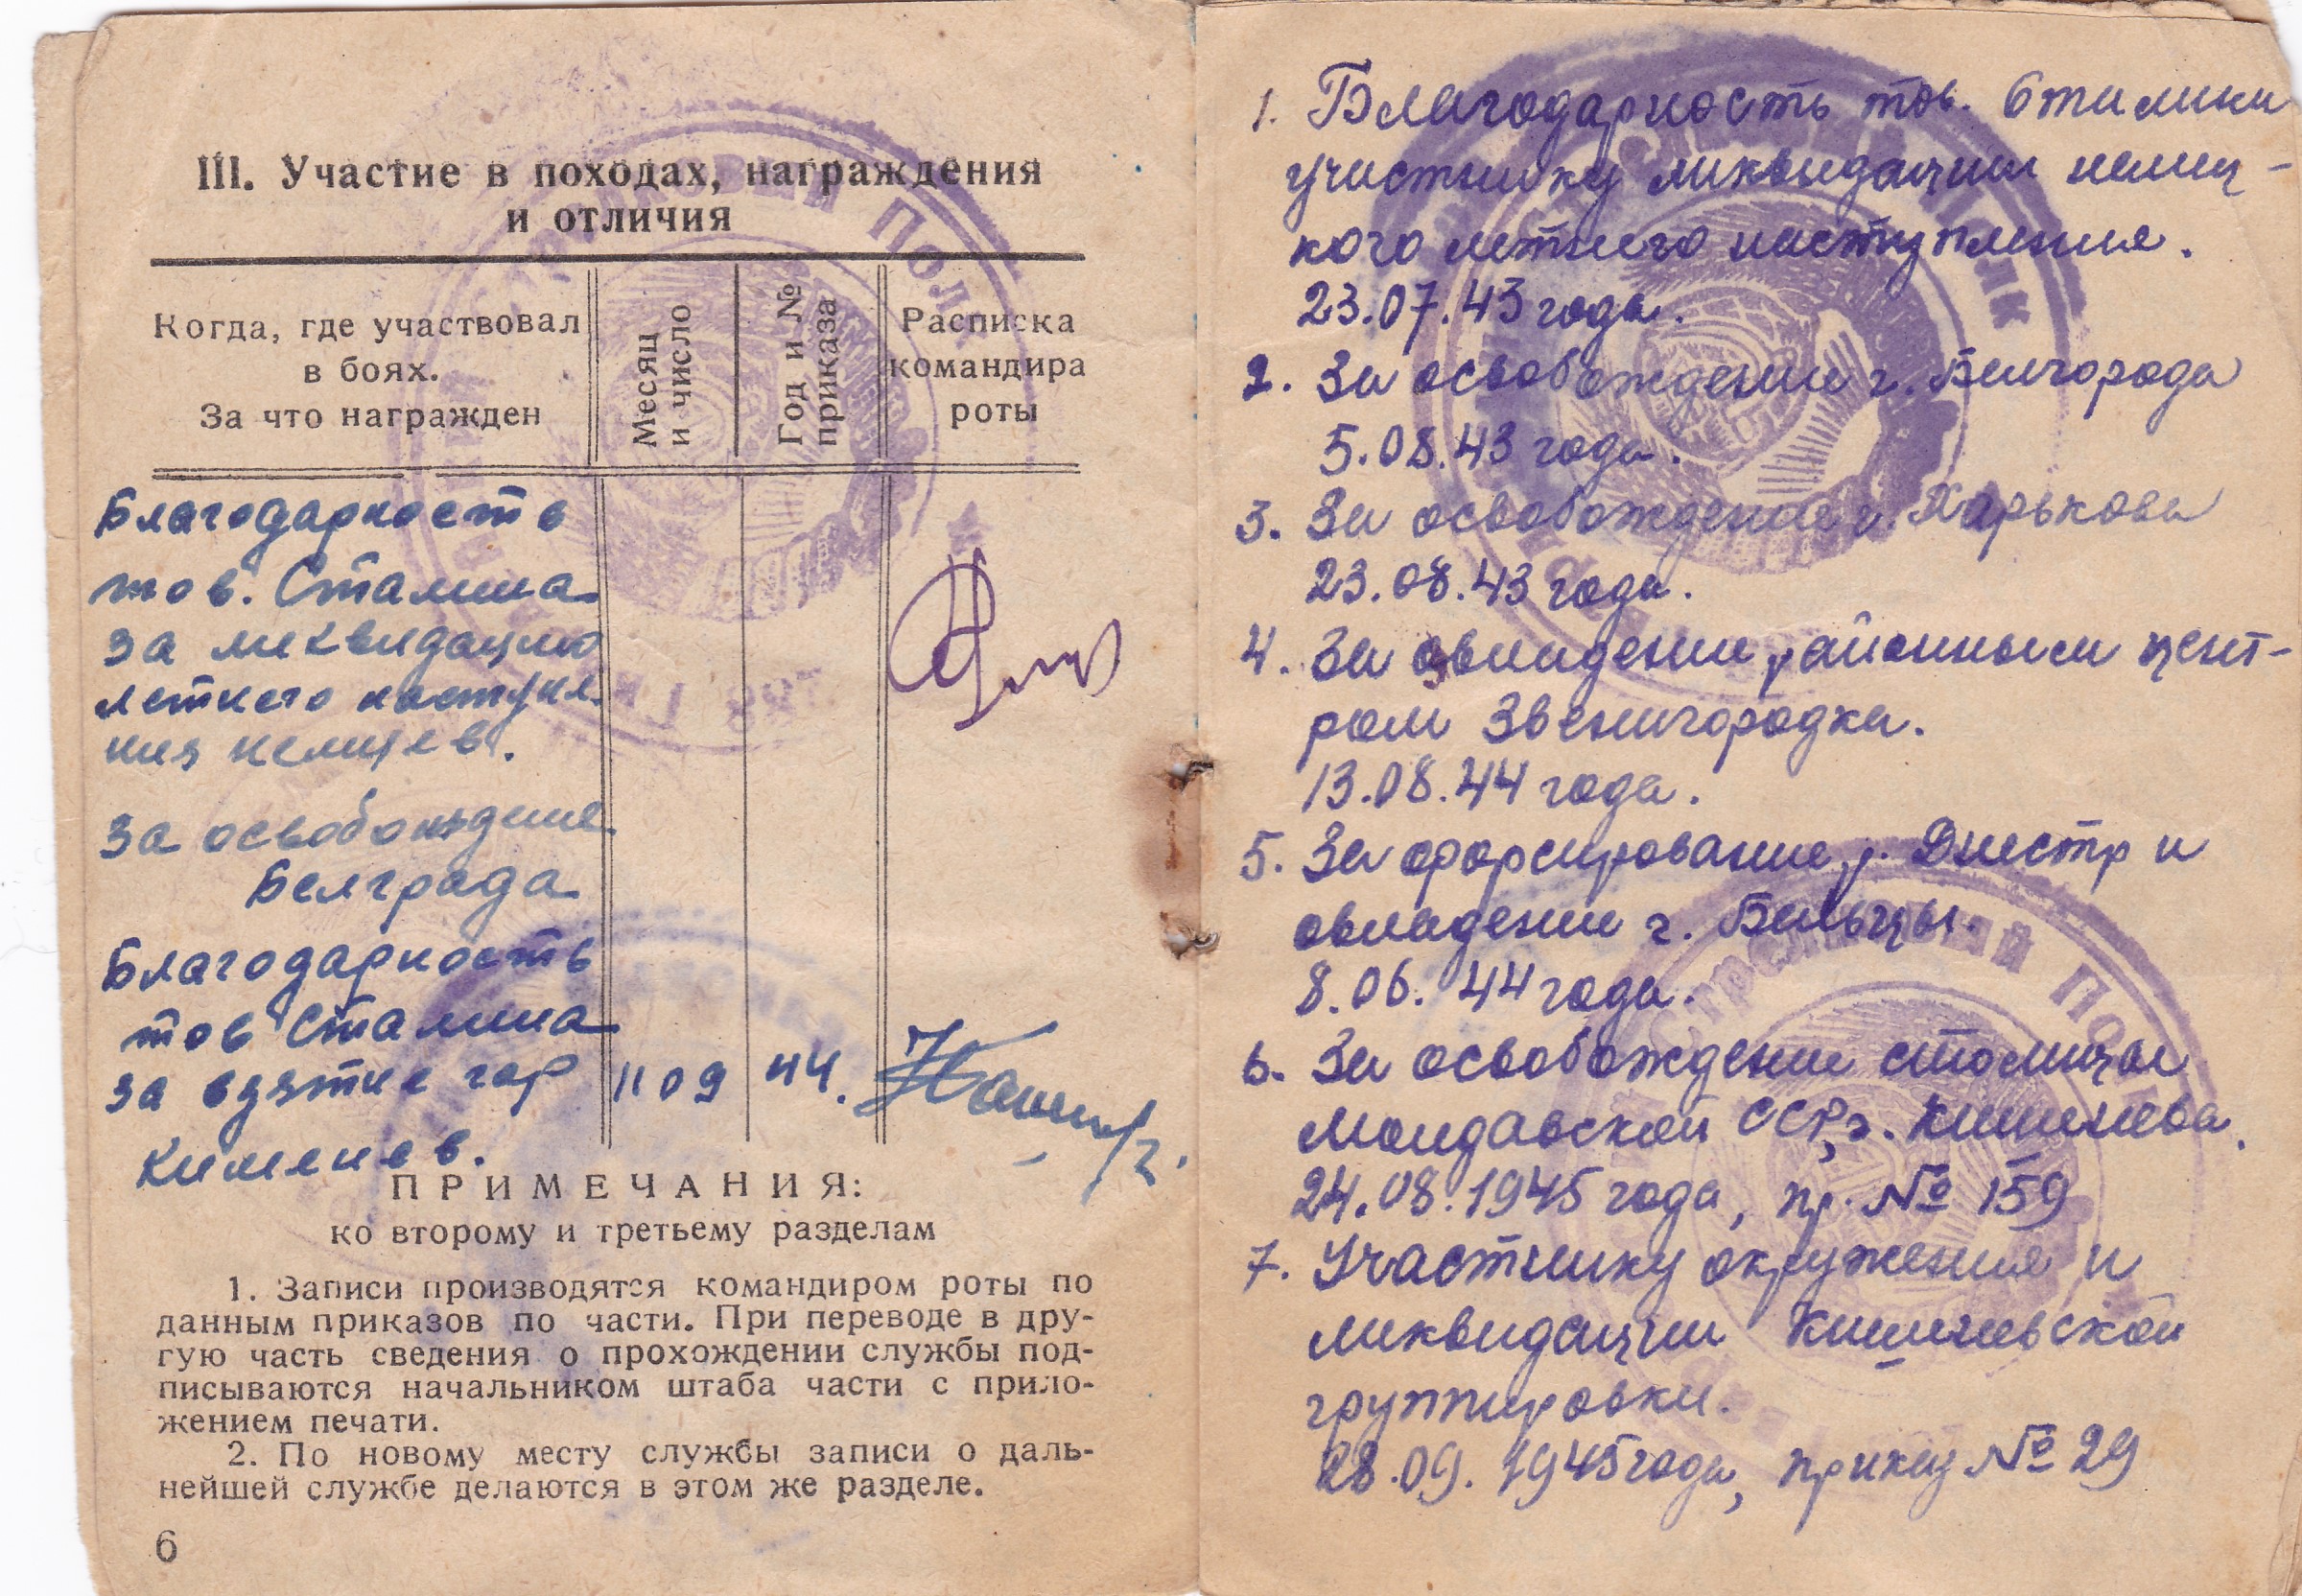 III. Участие в походах, награждения
и отличия
Когда, где участвовал
в боях.
За что награжден
Месяц
и число
Год и №
приказа
Расписка
командира
роты
Благодарность
тов. Сталина
за ликвидацию
летнего наступле
ния немцев.
За освобождение
Белграда
Благодарность
тов Сталина
за взятие гор 11 09 44.
Кишенев.
ПРИМЕЧАНИЯ:
ко второму и третьему разделам
1. Записи производятся командиром роты по
данным приказов по части. При переводе в дру-
гую часть сведения о прохождении службы под-
писываются начальником штаба части с прило-
жением печати.
2. По новому месту службы записи о даль-
нейшей службе делаются в этом же разделе.
6
1. Благодарность тов. Сталина
участнику ликвидации немец-
кого летнего наступления.
23.07.43 года.
2. За освобождение г. Белгорода
5.08.43 года.
3. За освобождение г. Харькова
23.08.43 года.
4. За овладение районным цент-
ром Звенигородка.
13.08.44 года.
5. За форсирование р. Днестр и
овладение г. Бельцы.
8.06.44 года.
6. За освобождение столицы
Молдавской ССР, г. Кишинева.
24.08.1945 года, пр. № 159
7. Участнику окружения и
ликвидации Кишиневской
группировки.
28.09.1945 года, приказ № 29
Стрелковый Полк
Стрелковый По